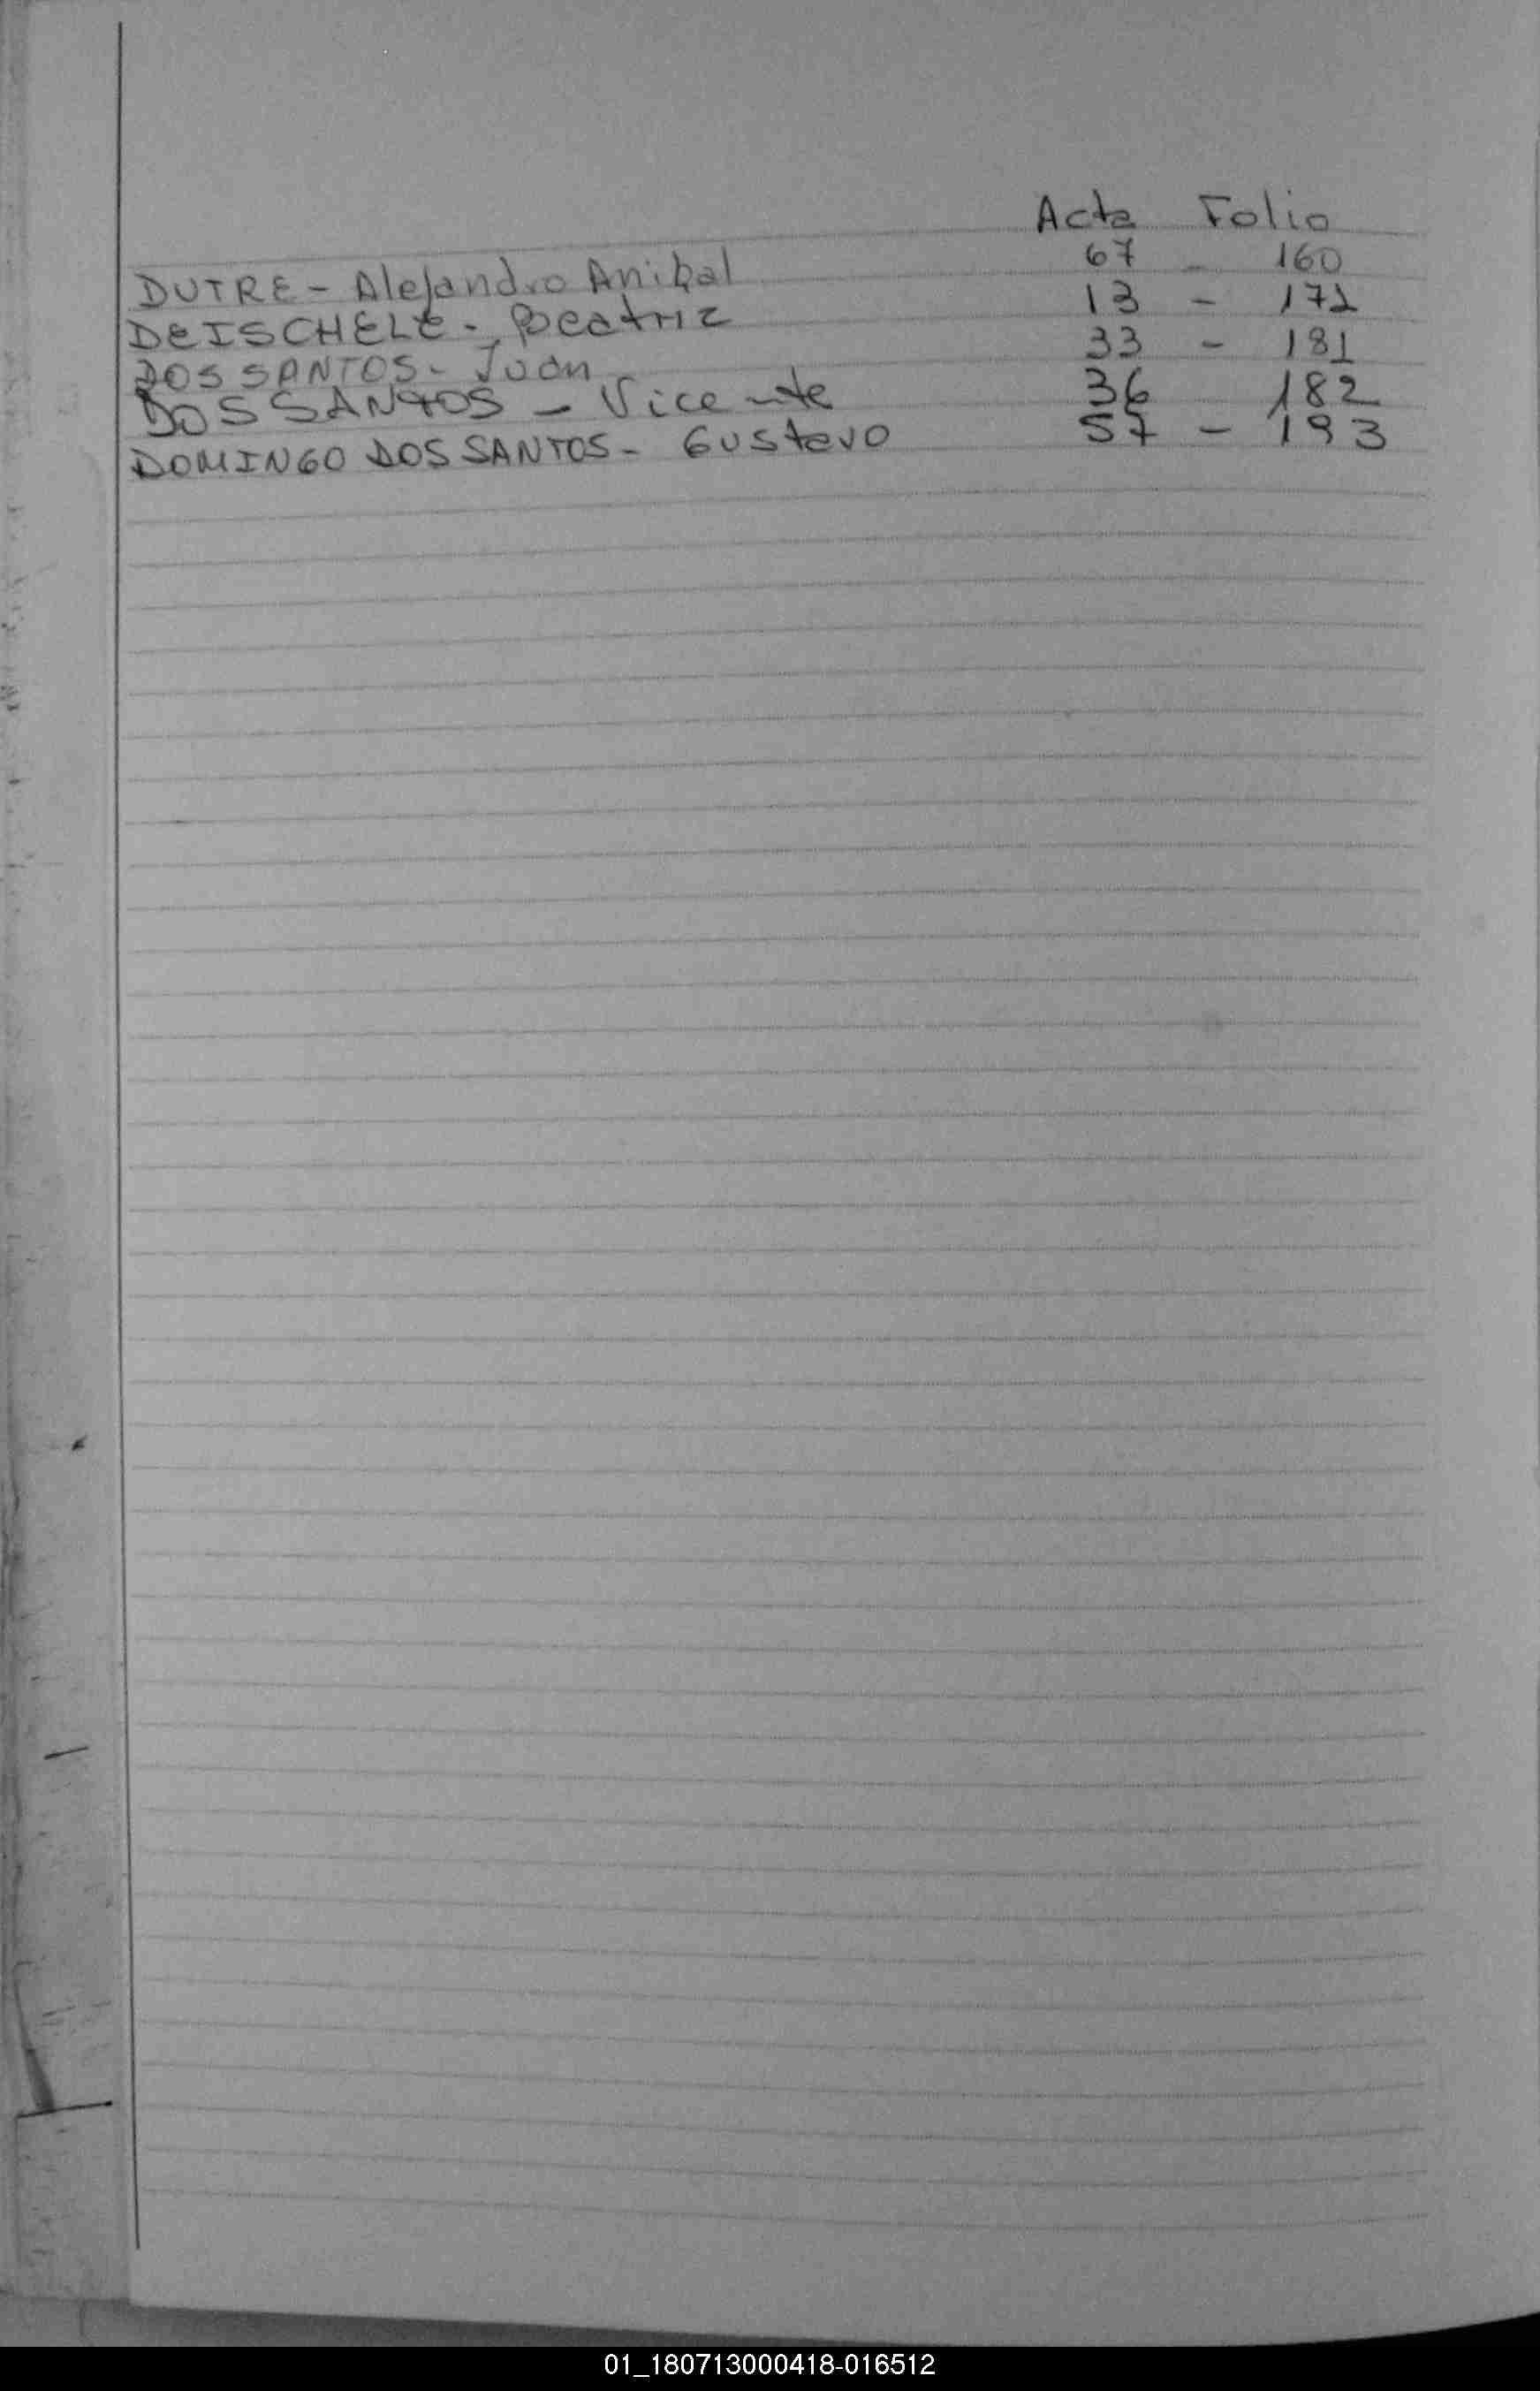 Acta Folio
DUTRE - Alejandro Anibal 67 - 160
DEISCHELE - Beatriz 13 - 171
DOS SANTOS - Juan 33 - 181
DOS SANTOS - Vicente 36 182
DOMINGO DOS SANTOS - Gustavo 57 - 193
01_180713000418-016512